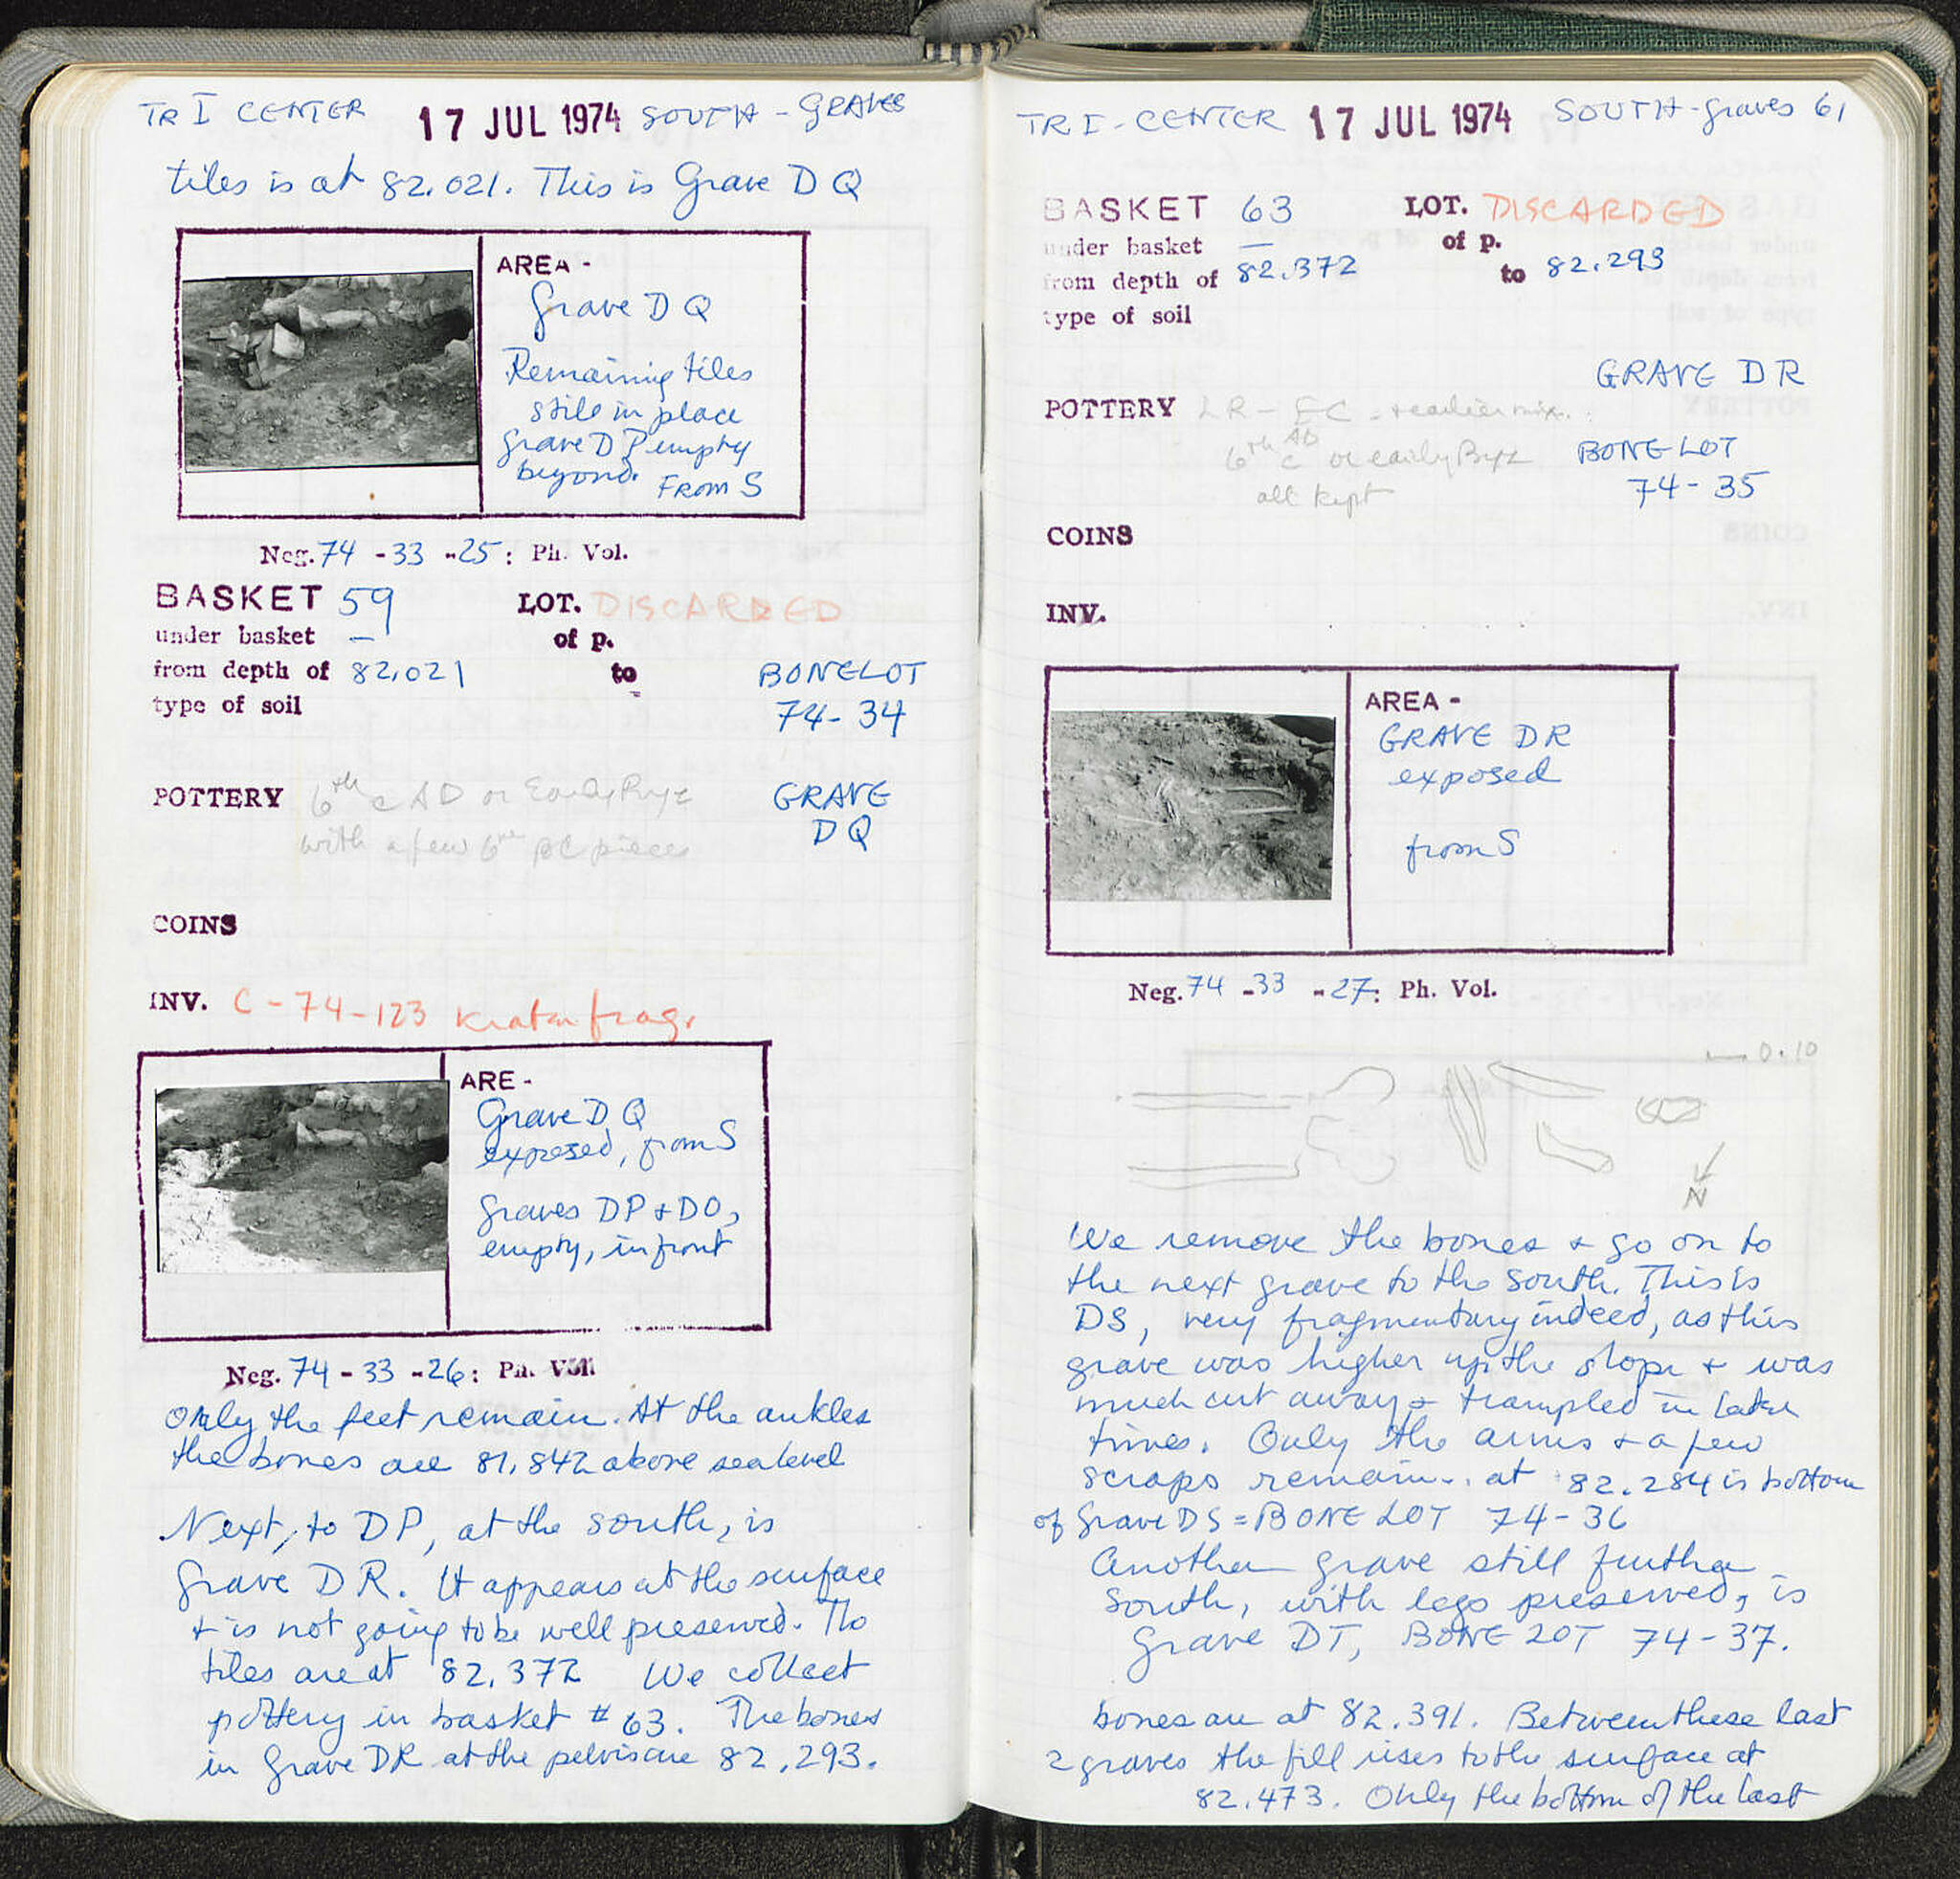 TR I CENTER 17 JUL 1974 SOUTH - GRAVES
tiles is at 82.021. This is Grave D Q
AREA -
Grave D Q
Remaining tiles
still in place
Grave D P empty
beyond. FROM S
Neg. 74 - 33 - 25 : Ph. Vol.
BASKET 59 LOT. DISCARDED
under basket — of p.
from depth of 82.021 to
type of soil
BONE LOT
74-34
POTTERY 6th c AD or Early Byz
with a few 6th BC pieces
GRAVE
DQ
COINS
INV. C-74-123 krater frag.
ARE -
Grave D Q
exposed, from S
Graves DP + DO,
empty, in front
Neg. 74 - 33 - 26 : Ph. Vol.
Only the feet remain. At the ankles
the bones are 81.842 above sea level
Next, to DP, at the south, is
Grave DR. It appears at the surface
+ is not going to be well preserved. The
tiles are at 82.372 We collect
pottery in basket # 63. The bones
in Grave DR at the pelvis are 82.293.
TR I - CENTER 17 JUL 1974 SOUTH - graves 61
BASKET 63 LOT. DISCARDED
under basket — of p.
from depth of 82.372 to 82.293
type of soil
GRAVE DR
POTTERY LR - EC - + earlier mix.
6th c AD or early Byz
all kept
BONE LOT
74-35
COINS
INV.
AREA -
GRAVE DR
exposed
from S
Neg. 74 - 33 - 27 : Ph. Vol.
0.10
N
We remove the bones + go on to
the next grave to the south. This is
DS, very fragmentary indeed, as this
grave was higher up the slope + was
much cut away + trampled in later
times. Only the arms + a few
scraps remain. at 82.284 is bottom
of Grave DS = BONE LOT 74-36
Another grave still further
South, with legs preserved, is
Grave DT, BONE LOT 74-37.
bones are at 82.391. Between these last
2 graves the fill rises to the surface at
82.473. Only the bottom of the last